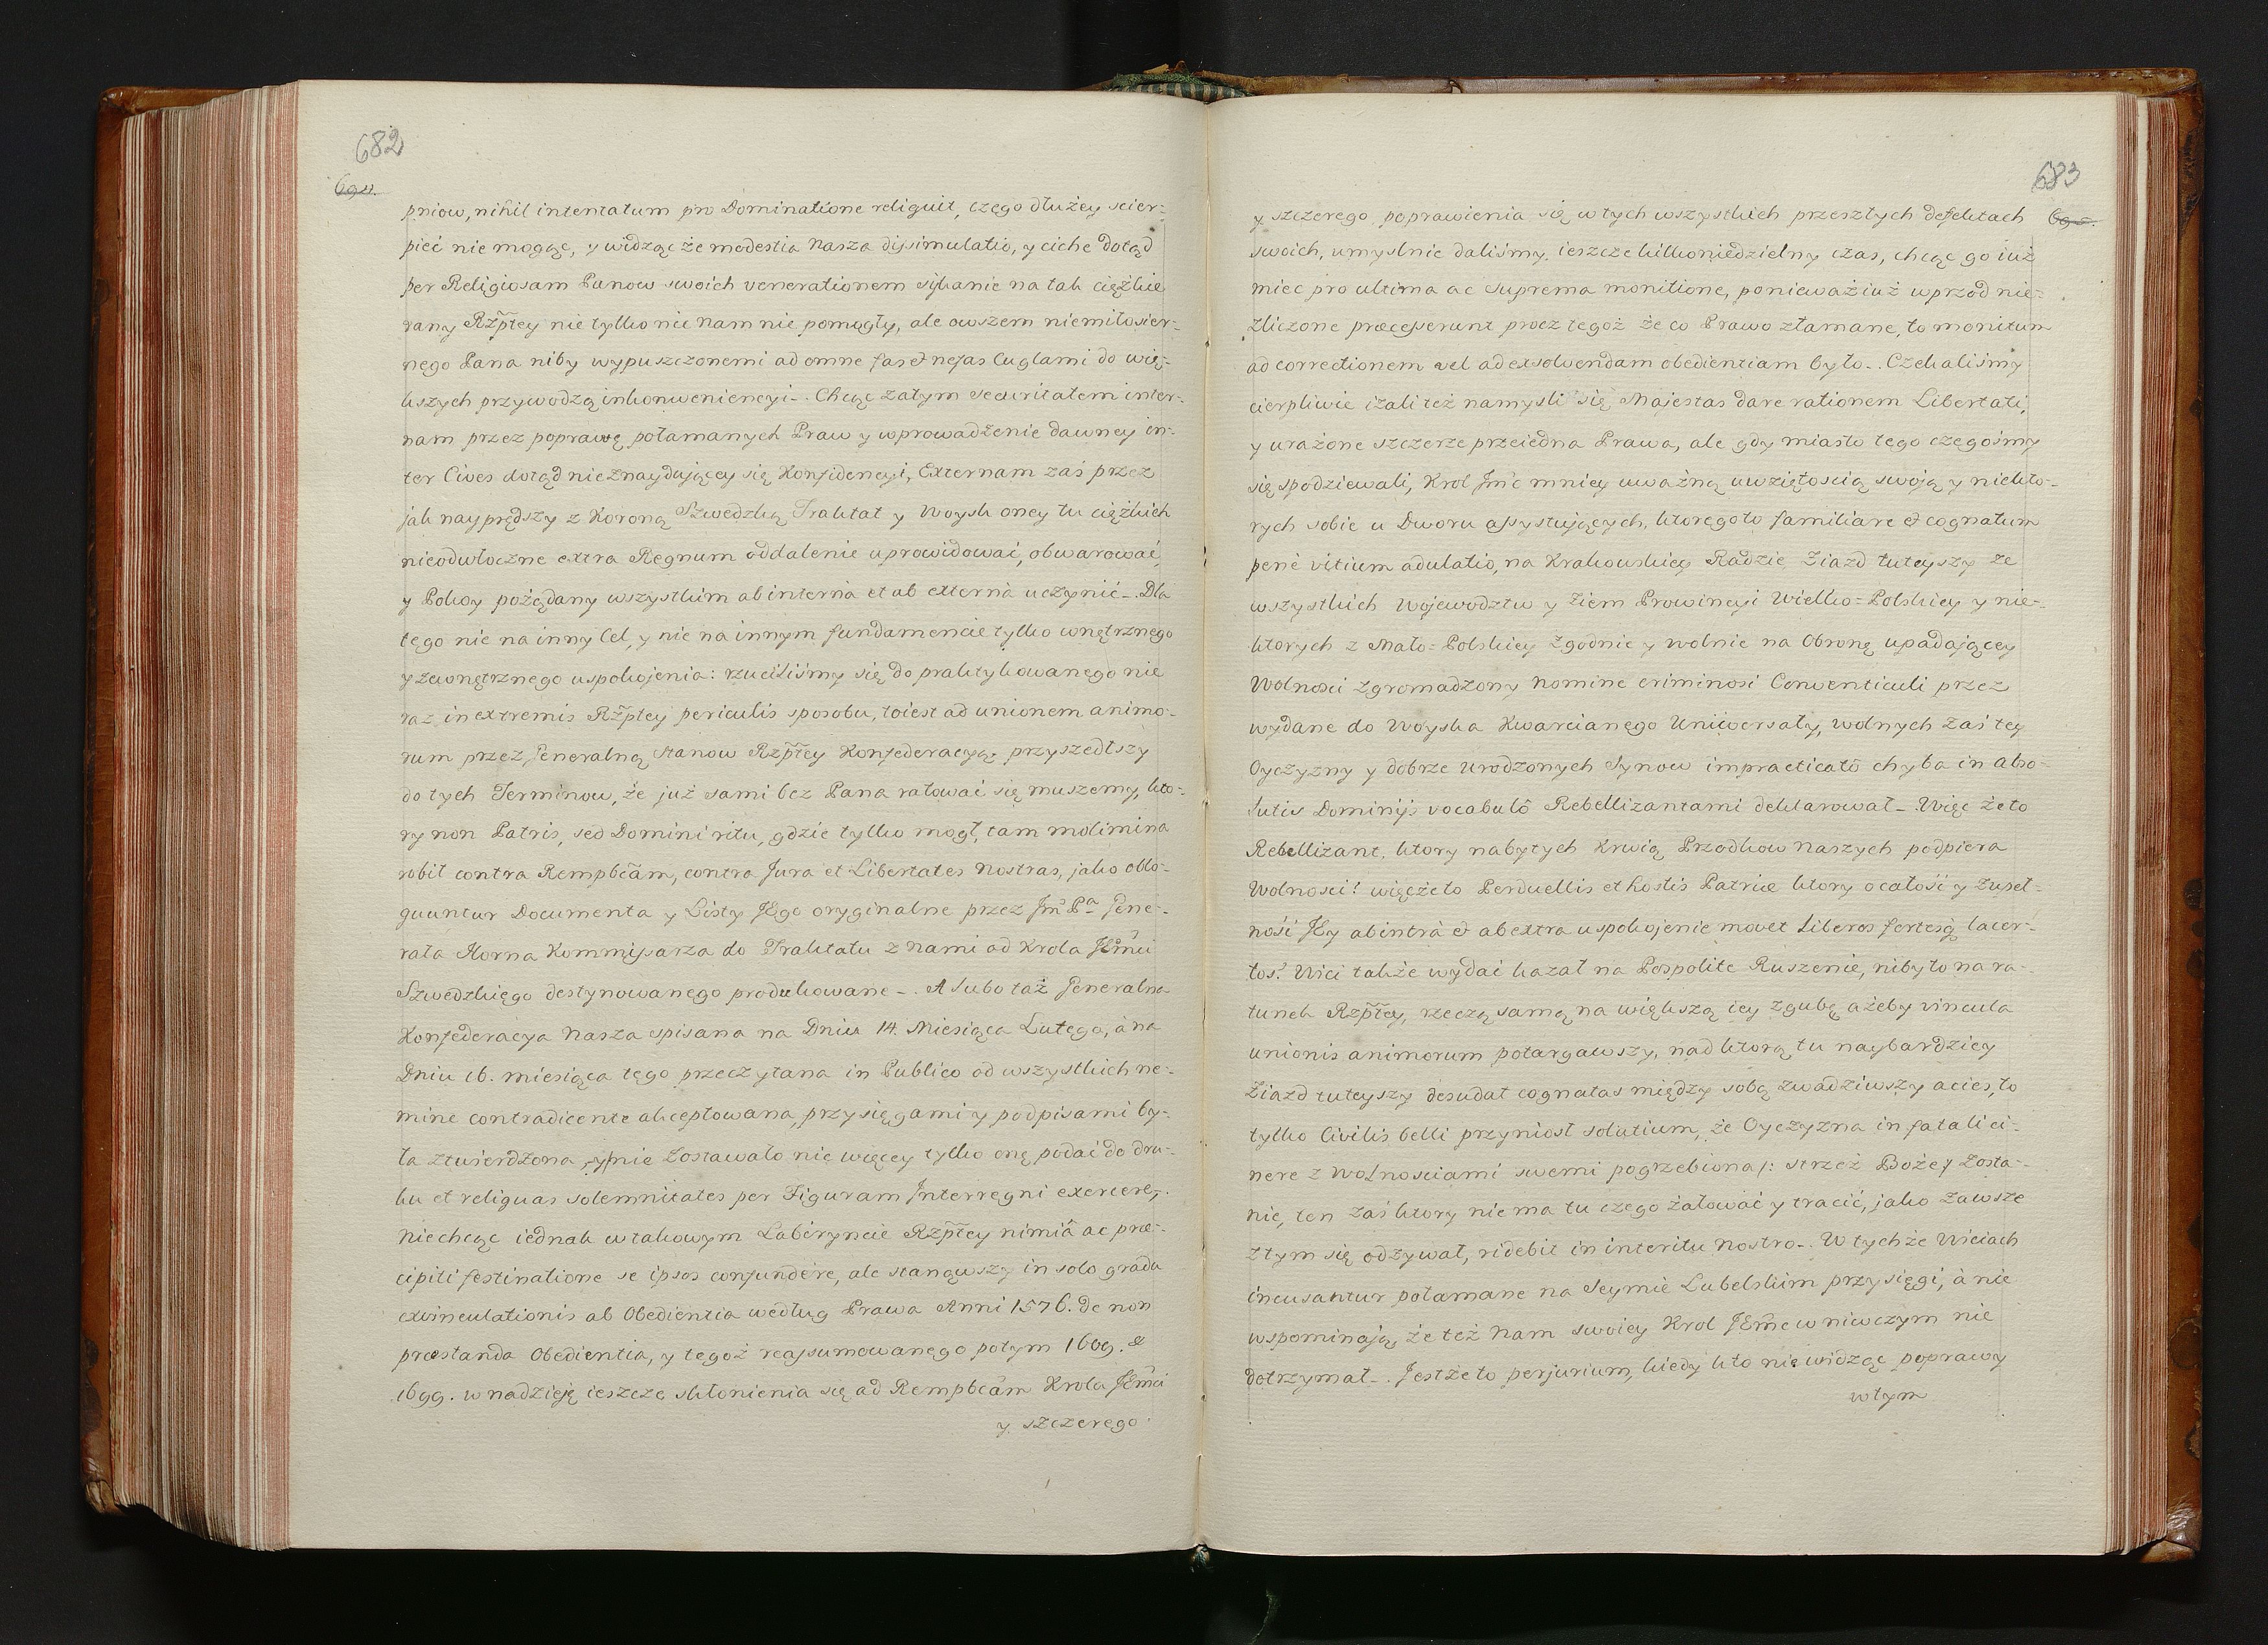 682
pniow, nihil intentatum pro Dominatione reliquit, czego dłużey scier-
pieć nie mogąc, y widząc że modestia nasza dissimulatio, y ciche dotąd
per Religiosam Panow swoich venerationem sykanie na tak cięźkie
rany Rzptey nie tylko nic nam nie pomogły, ale owszem niemiłosier-
nego Pana niby wypuszczonemi ad omne fas et nefas Cuglami do wię-
kszych przywodzą inkonweniencyi. Chcąc zatym securitatem inter-
nam przez poprawę połamanych Praw y wprowadźenie dawney in-
ter Cives dotąd nieznaydującey się Konfidencyi, Externam zaś przez
jak nayprędszy z Koroną Szwedzką Traktat y Woysk oney tu cięźkich
nieodwłoczne extra Regnum oddalenie uprowidować, obwarować,
y Pokoy pożądany wszystkim ab interna et ab externa uczynić. Dla
tego nie na inny Cel, y nie na innym fundamencie tylko wnętrznego
y zewnętrznego uspokojenia: rzuciliśmy się do praktykowanego nie
raz in extremis Rzptey periculis sposobu, to iest ad unionem animo-
rum przez Generalną Stanow Rzptey Konfederacyą, przyszedłszy
do tych Terminow, że już sami bez Pana ratować się muszemy, kto-
ry non Patris, sed Domini ritu, gdzie tylko mogł, tam molimina
robił contra Rempbcam, contra Jura et Libertates nostras, jako oblo-
quuntur Documenta y Listy JEgo oryginalne przez Jmc Pa Gene-
rała Horna Kommissarza do Traktatu z nami od Krola JEmci
Szwedzkiego destynowanego produkowane. A lubo taż Generalna
Konfederacya nasza spisana na Dniu 14. Miesiąca Lutego, a na
Dniu 16. miesiąca tego przeczytana in Publico od wszystkich ne-
mine contradicente akceptowana, przysięgami y podpisami by-
ła ztwierdzona, y nie zostawało nic więcey tylko onę podać do dru-
ku et reliquas solemnitates per Figuram Interregni exercere,
niechcąc iednak w takowym Labiryncie Rzptey nimiâ ac præ-
cipiti festinatione se ipsos confundere, ale stanąwszy in solo gradu
exvinculationis ab Obedientia według Prawa Anni 1576. de non
præstanda Obedientia, y tegoż reassumowanego potym 1609. &
1699. w nadzieję ieszcze skłonienia się ad Rempbcam Krola JEmci
y szczerego
683
y szczerego poprawienia się w tych wszystkich przeszłych defektach
swoich, umyslnie daliśmy ieszcze kilkoniedzielny czas, chcąc go iuż
miec pro ultima ac suprema monitione, ponieważ iuż wprzod nie-
zliczone præcesserunt procz tegoż że co Prawo złamane, to monitum
ad correctionem vel ad exsolvendam obedientiam było. Czekaliśmy
cierpliwie izali też namysli się Majestas dare rationem Libertati,
y urażone szczerze przeiedna Prawa, ale gdy miasto tego czegośmy
się spodziewali, Krol Jmc mniey uważną uwziętoscią swoją y niekto-
rych sobie u Dworu assystujących, ktoregoto familiare et cognatum
penè vitium adulatio, na Krakowskiey Radzie Ziazd tuteyszy ze
wszystkich Wojewodztw y Ziem Prowincyi Wielko-Polskiey y nie-
ktorych z Mało-Polskiey zgodnie y wolnie na Obronę upadającey
Wolności zgromadzony nomine criminosi Conventiculi przez
wydane do Woyska Kwarcianego Uniwersały, wolnych zaś tey
Oyczyzny y dobrze urodzonych Synow impracticatô chyba in abso-
lutis Dominijs vocabulô Rebellizantami deklarował. Więc że to
Rebellizant, ktory nabytych Krwią Przodkow naszych podpiera
Wolnosci? więcżeto Perduellis et hostis Patriæ ktory o całość y zupeł-
ność JEy ab intrà et ab extra uspokojenie movet Liberos fortesq; lacer-
tos? Wici także wydać kazał na Pospolite Ruszenie, niby to na ra-
tunek Rzptey, rzeczą samą na większą iey zgubę ażeby vincula
unionis animorum potargawszy, nad ktorą tu naybardziey
Ziazd tuteyszy desudat cognatas między sobą zwadziwszy acies, to
tylko Civilis belli przyniosł solutium, że Oyczyzna in fatali ci-
nere z Wolnosciami swemi pogrzebiona /: strzeż Boże :/ zosta-
nie, ten zaś ktory niema tu czego żałować y tracić, jako zawsze
z tym się odzywał, ridebit in interitu nostro. W tychże Wiciach
incusantur połamane na Seymie Lubelskim przysięgi, à nie
wspominają, że też nam swoiey Krol JEmc w niwczym nie
dotrzymał. Jestżeto perjurium, kiedy kto nie widząc poprawy
w tym